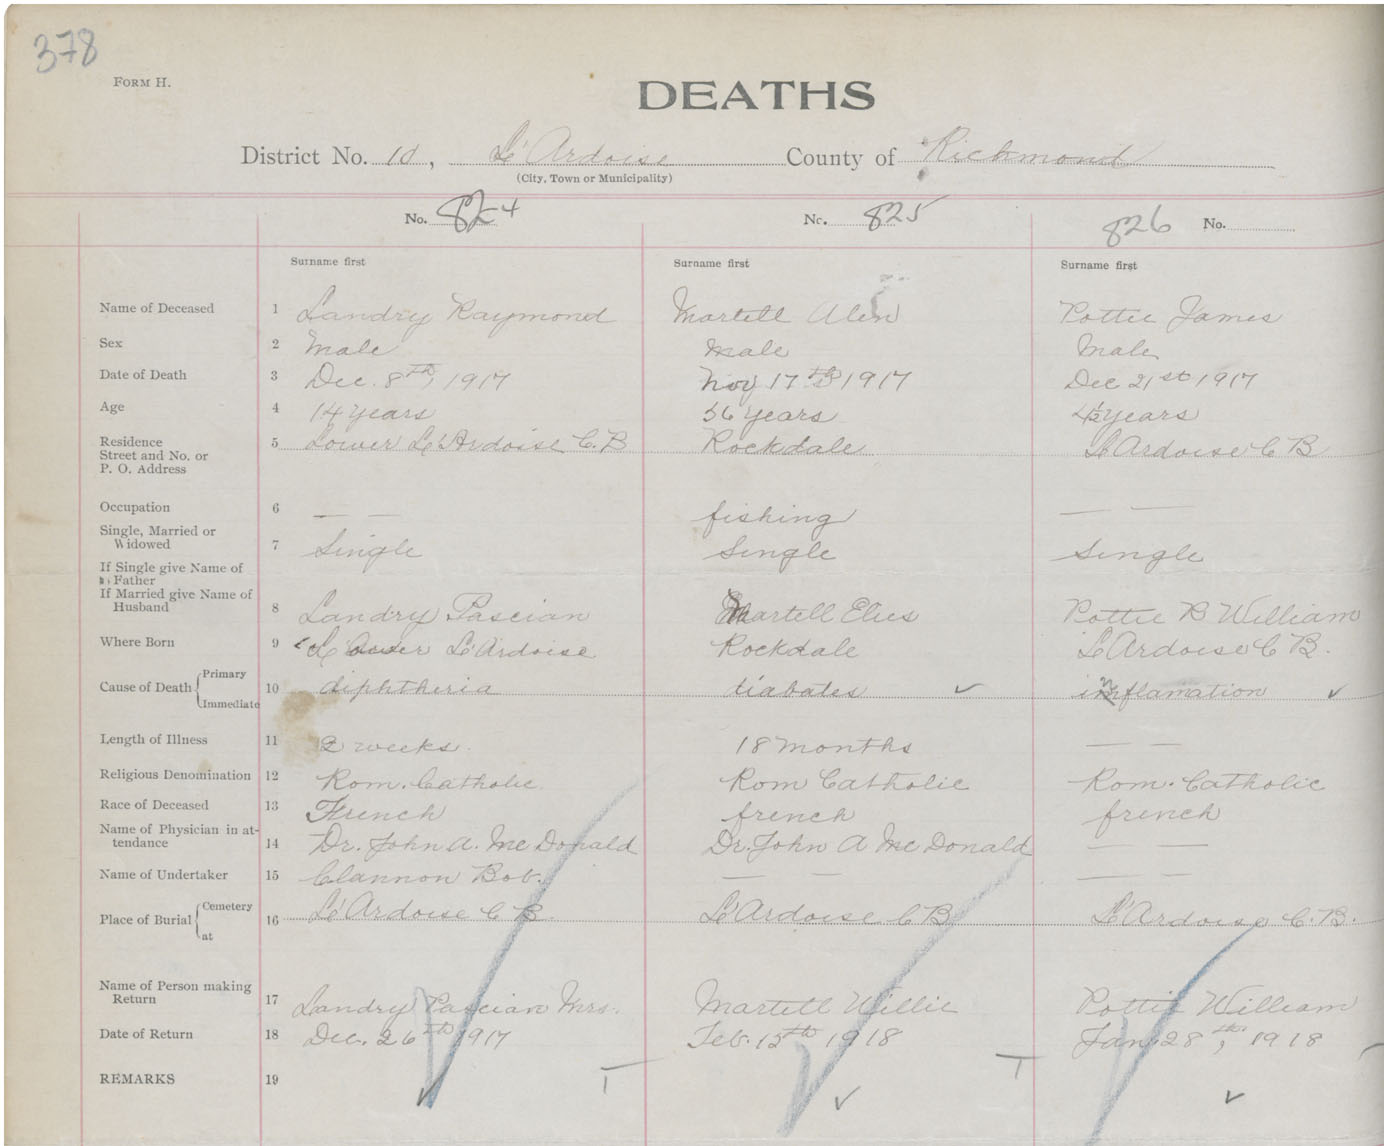 378
FORM H.
DEATHS
District No. 10, L'Ardoise County of Richmond
(City, Town or Municipality)
No. 824 No. 825 826 No.
Surname first Surname first Surname first
Name of Deceased 1 Landry Raymond Martell Alex Pottie James
Sex 2 Male Male Male
Date of Death 3 Dec. 8th, 1917 Nov 17th 1917 Dec 21st 1917
Age 4 14 years 56 years 4½ years
Residence Street and No. or P. O. Address 5 Lower L'Ardoise C.B Rockdale L'Ardoise C B
Occupation 6 — — fishing — —
Single, Married or Widowed 7 Single Single Single
If Single give Name of Father
If Married give Name of Husband 8 Landry Pascian Martell Elies Pottie B William
Where Born 9 Lower L'Ardoise Rockdale L'Ardoise C B.
Cause of Death Primary Immediate 10 diphtheria diabates inflamation
Length of Illness 11 2 weeks 18 months — —
Religious Denomination 12 Rom. Catholic Rom Catholic Rom. Catholic
Race of Deceased 13 French french french
Name of Physician in attendance 14 Dr. John A. McDonald Dr. John A McDonald — —
Name of Undertaker 15 Clannon Bob. — — — —
Place of Burial Cemetery at 16 L'Ardoise C B L'Ardoise C B L'Ardoise C.B.
Name of Person making Return 17 Landry Pascian Mrs. Martell Willie Pottie William
Date of Return 18 Dec. 26th 1917 Feb. 15th 1918 Jan. 28th, 1918
REMARKS 19